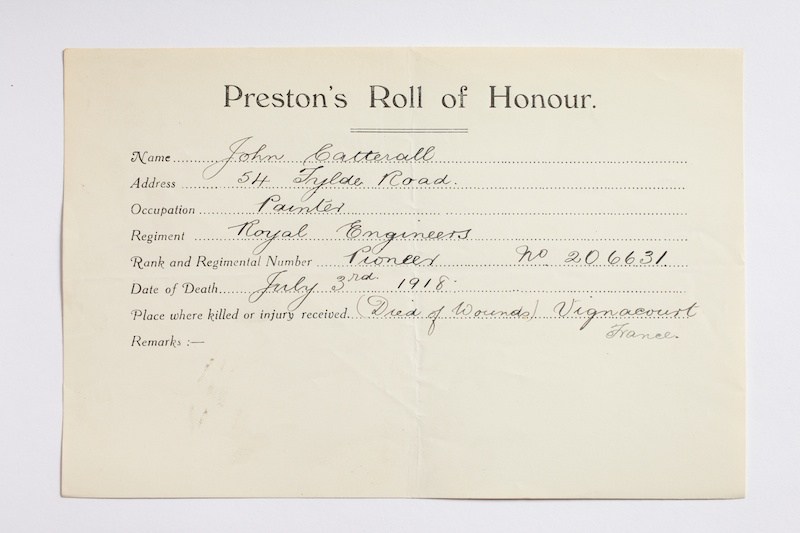 Preston's Roll of Honour.
Name John Catterall
Address 54 Fylde Road.
Occupation Painter
Regiment Royal Engineers
Rank and Regimental Number Pioneer No 206631.
Date of Death July 3rd 1918.
Place where killed or injury received. (Died of Wounds) Vignacourt
France.
Remarks :—